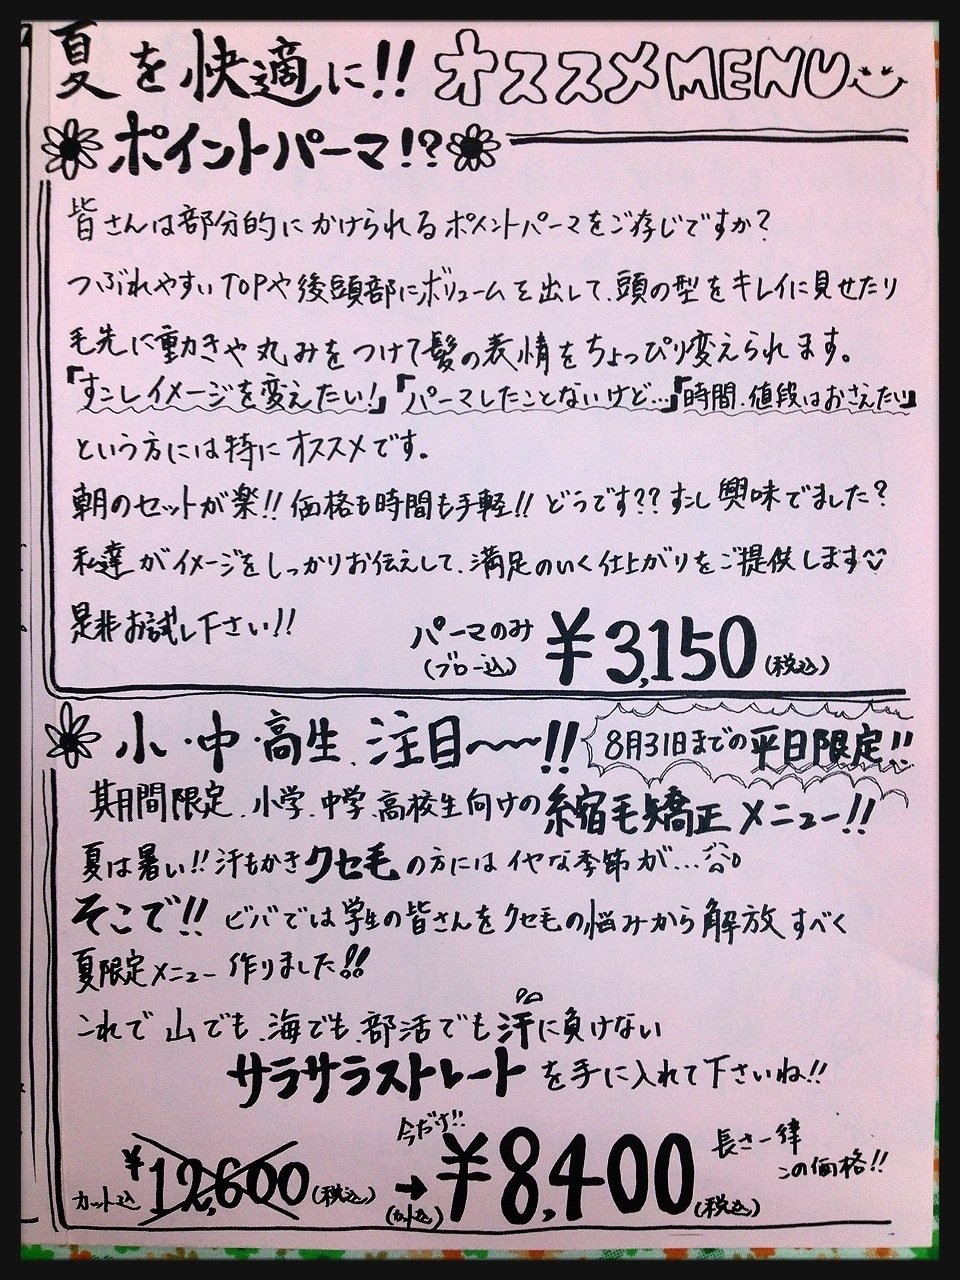 夏を快適に!! オススメMENU
ポイントパーマ!?
皆さんは部分的にかけられるポイントパーマをご存じですか?
つぶれやすいTOPや後頭部にボリュームを出して、頭の型をキレイに見せたり
毛先に動きや丸みをつけて髪の表情をちょっぴり変えられます。
『すこしイメージを変えたい!』『パーマしたことないけど…』『時間、値段はおさえたい』
という方には特にオススメです。
朝のセットが楽!! 価格も時間も手軽!! どうです?? すこし興味でました?
私達がイメージをしっかりお伝えして、満足のいく仕上がりをご提供します
是非お試し下さい!!
パーマのみ ¥3,150 (税込)
(ブロー込)
小・中・高生、注目〜〜!! 8月31日までの平日限定!!
期間限定、小学、中学、高校生向けの縮毛矯正メニュー!!
夏は暑い!! 汗もかきクセ毛の方にはイヤな季節が…
そこで!! ビバでは学生の皆さんをクセ毛の悩みから解放すべく
夏限定メニュー作りました!!
これで山でも、海でも、部活でも汗に負けない
サラサラストレートを手に入れて下さいね!!
カット込 ¥12,600 (税込) → 今だけ!! ¥8,400 (税込) (カット込)
長さ一律
この価格!!